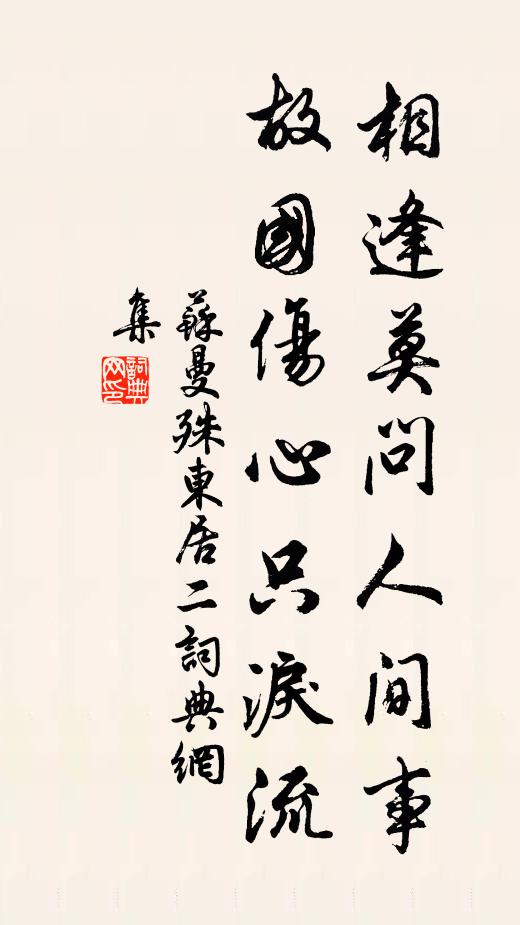 相逢莫问人间事
故國傷心只淚流
蘇曼殊東居二詞典網
集
詞典
网印